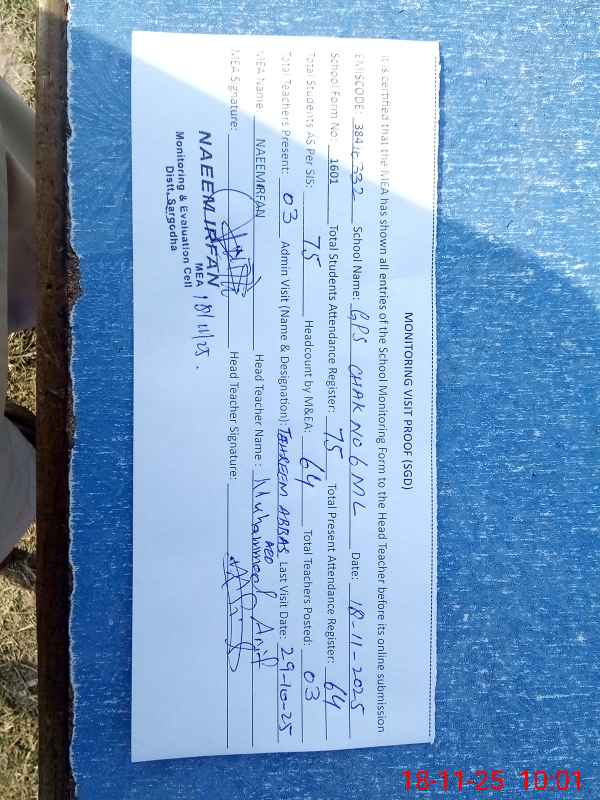 MONITORING VISIT PROOF (SGD)
It is certified that the MEA has shown all entries of the School Monitoring Form to the Head Teacher before its online submission
EMISCODE: 38414332 School Name: GPS CHAK NO 6 ML Date: 18-11-2025
School Form No. 1601 Total Students Attendance Register: 75 Total Present Attendance Register: 64
Total Students AS Per SIS: 75 Headcount by M&EA: 64 Total Teachers Posted: 03
Total Teachers Present: 03 Admin Visit (Name & Designation): TEHREEM ABBAS AEO Last Visit Date: 29-10-25
MEA Name NAEEM IRFAN Head Teacher Name: Muhammad Arif
MEA Signature: Head Teacher Signature:
NAEEM IRFAN
MEA 18/11/25.
Monitoring & Evaluation Cell
Distt. Sargodha
18-11-25 10:01